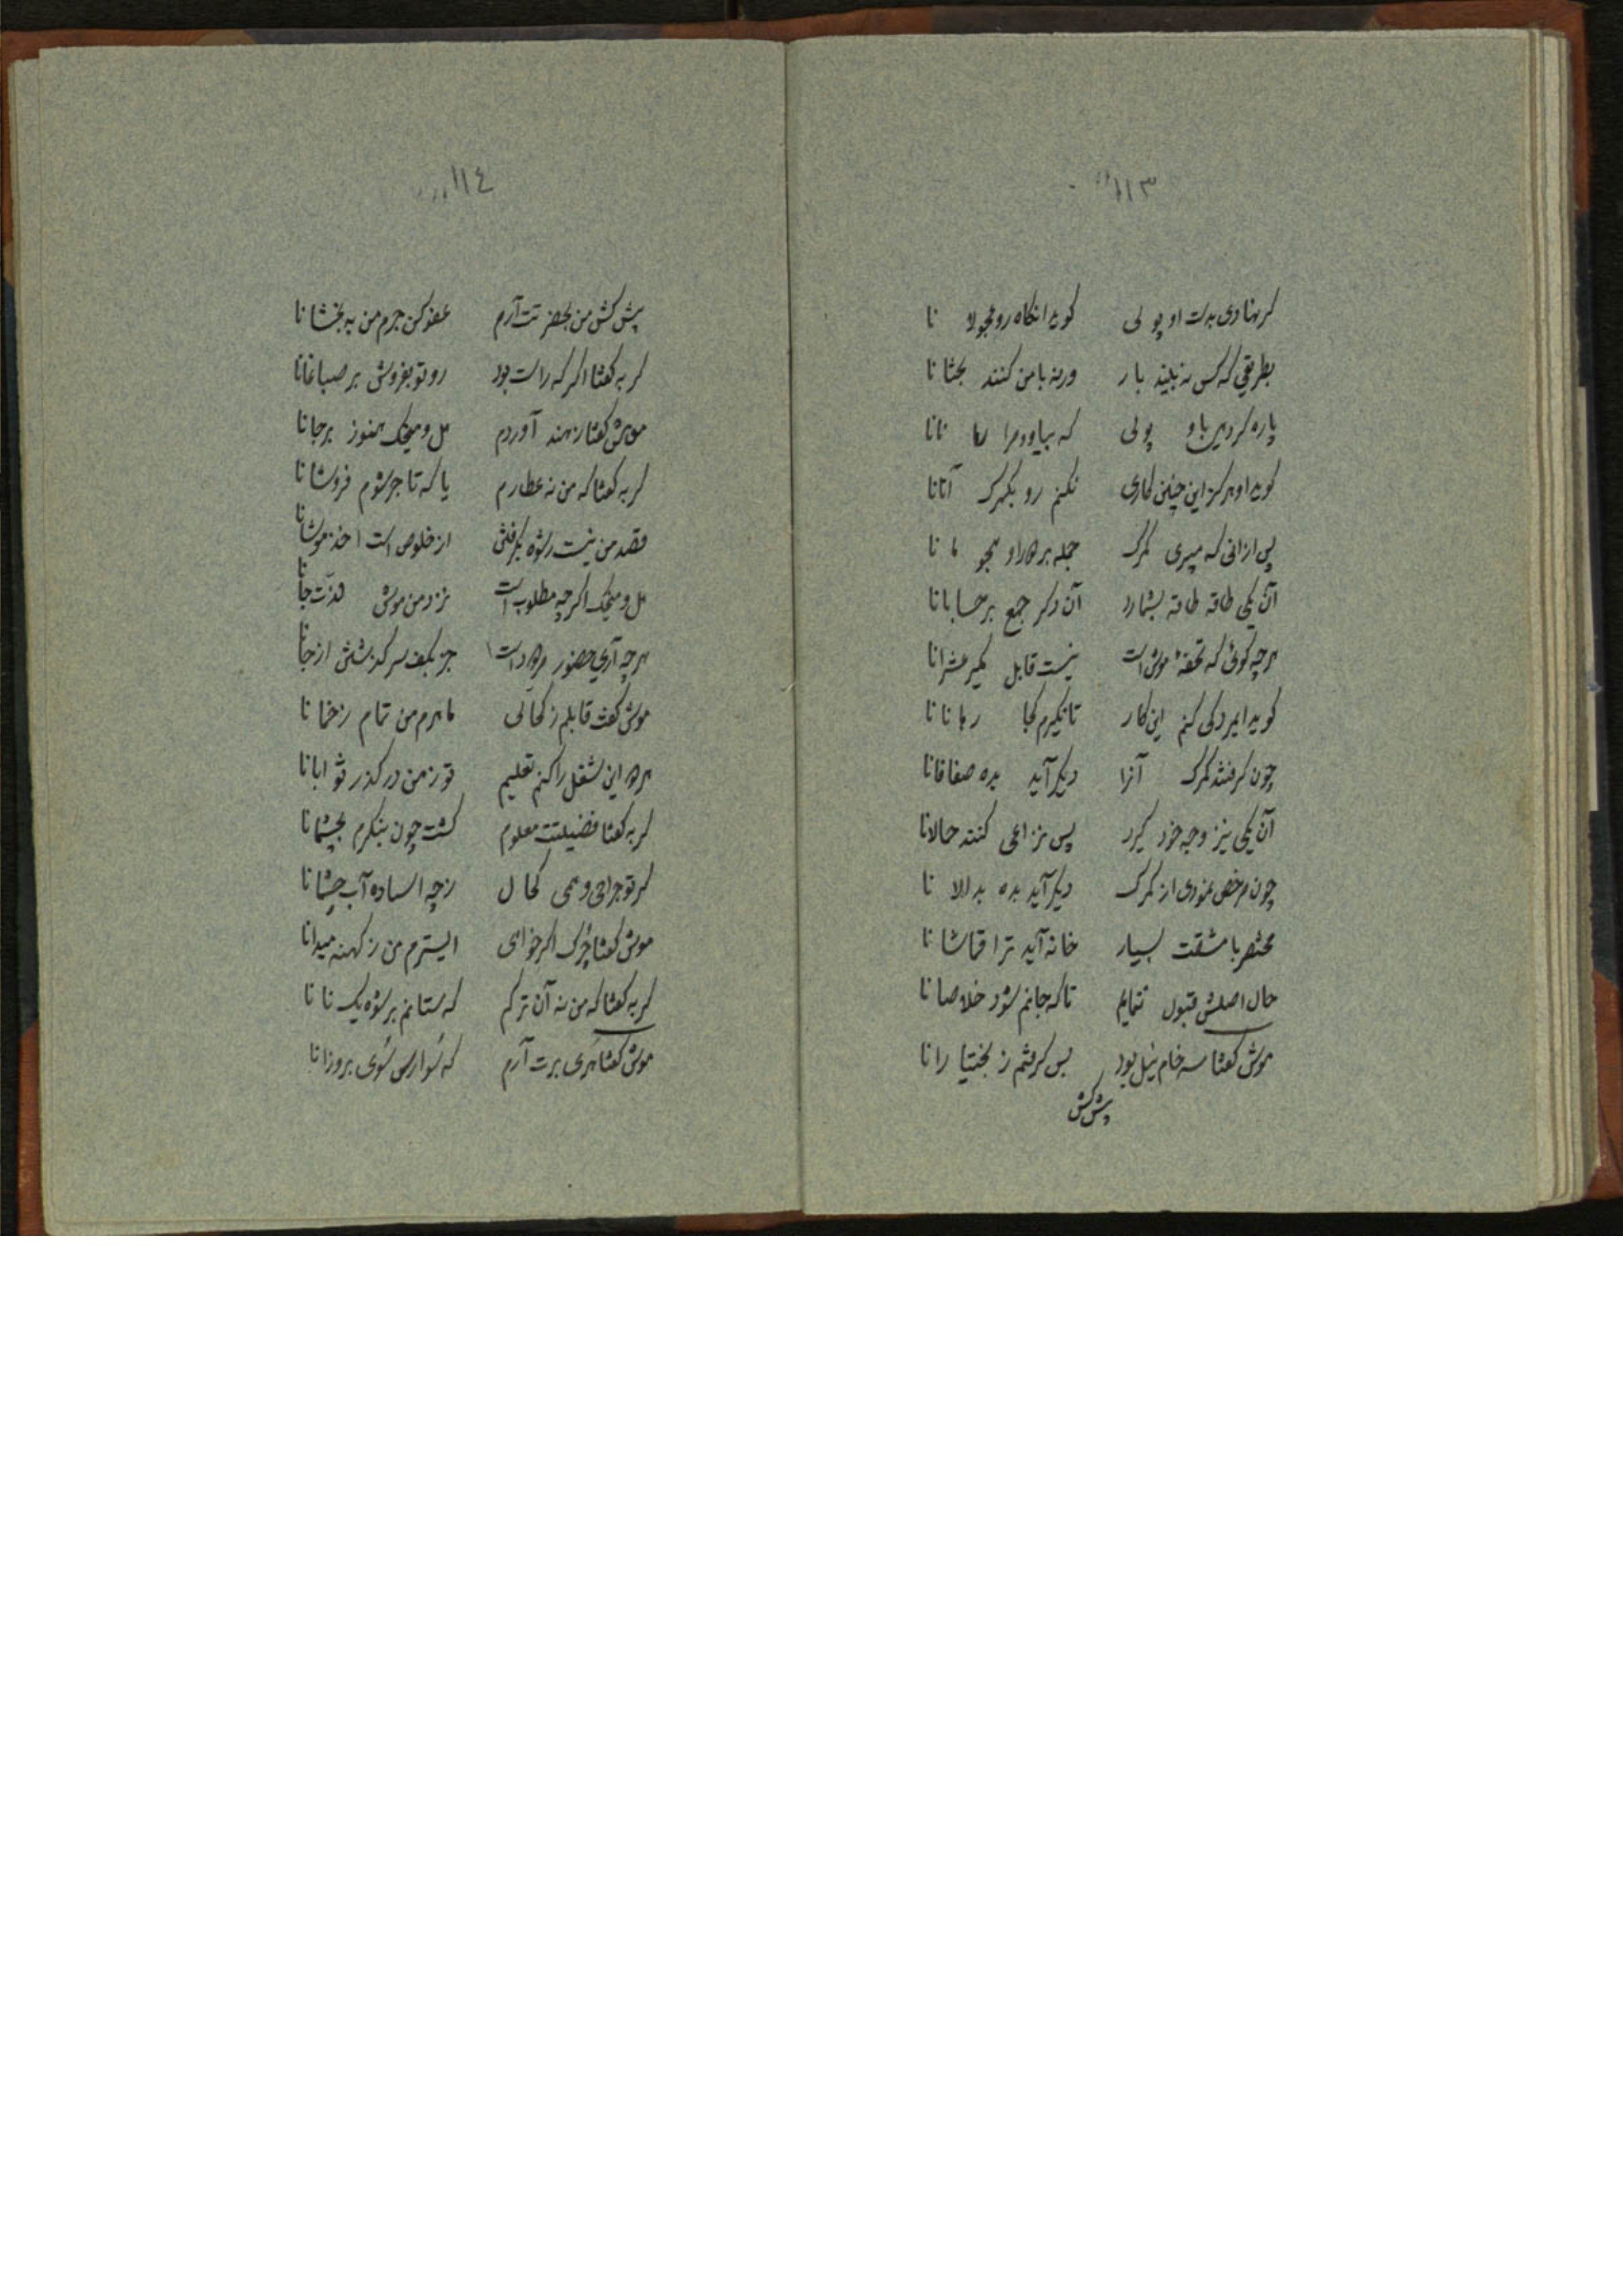 ١١٣
گر نهادی بدست او پولی گوید انگاه رو بجولا نا
بطریقی که کس نه بیند بار ورنه با من کنند بحثا نا
پاره کردی باو پولی که بیاور مرا نانا
گوید او هرگز این چنین کاری نکنم رو بگمرک آنانا
پس ازانی که میبری گمرک جمله همراه او بجو نا
آن یکی طاقه طاقه بشمارد آن دگر جمع بر حسابانا
هرچه گوئی که تحفهٔ موش است نیست قابل بگیر عشرانا
گوید ایمرد کی کنم این کار تا نگیرم کجا رهانا نا
چون گرفتند گمرک آنرا دیگر آید بده صفاقانا
آن یکی نیز وجه خود گیرد پس نزاعی کنند حالانا
چون مرخص نمودی از گمرک دیگر آید بده بدلالا نا
مختصر با مشقت بسیار خانه آید ترا قماشا نا
حال اصلش قبول ننمایم تا که جانم شود خلاصا نا
موش گفتا سه خام نیل بود بس گرفتم ز بختیا رانا
پیش کش
١١٤
پیش کش من بحضرتت آرم عفو کن جرم من به بخشا نا
گربه گفتا اگر که راست بود رو تو بفروش بر صباغانا
موش گفتا ز هند آوردم هل و میخک هنوز برجانا
گربه گفتا که من نه عطارم یا که تاجر شوم فروشا نا
قصد من نیست رشوه بگرفتن از خلوص است اخذ موشانا
هل و میخک اگرچه مطلوب است نزد من موش لذت جانا
هرچه آری حضور مردود است جز بکف سر گذشتن از جانا
موش گفت قابلم ز کحالی ماهرم من تمام زخما نا
همه این شغل را کنم تعلیم تو ز من در گذر ثوابانا
گربه گفتا فضیلتت معلوم گشت چون بنگرم بچشمانا
گر تو جراحی و همی کحال ز چه استاده آب چشمانا
موش گفتا چرک اگر خواهی ایسترم من ز کهنه میدانا
گربه گفتا که من نه آن ترکم که ستانم برشوه یک نانا
موش گفتا هری برت آرم که سوارس شوی بروزانا